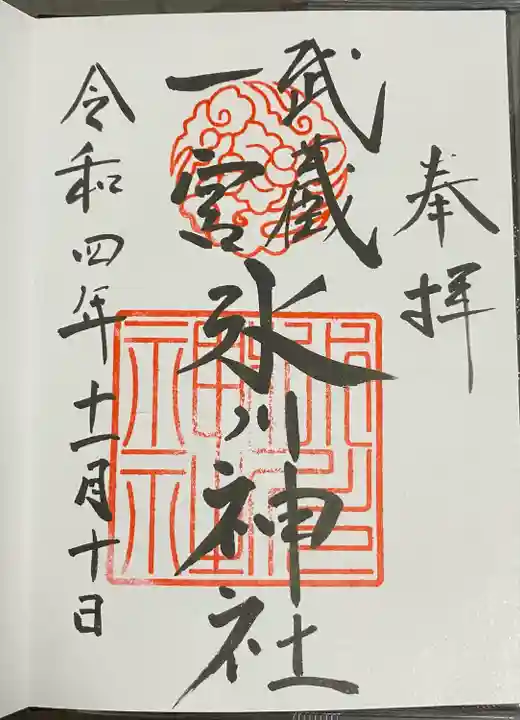 奉拝
武蔵
一宮
氷川神社
令和四年十一月十日